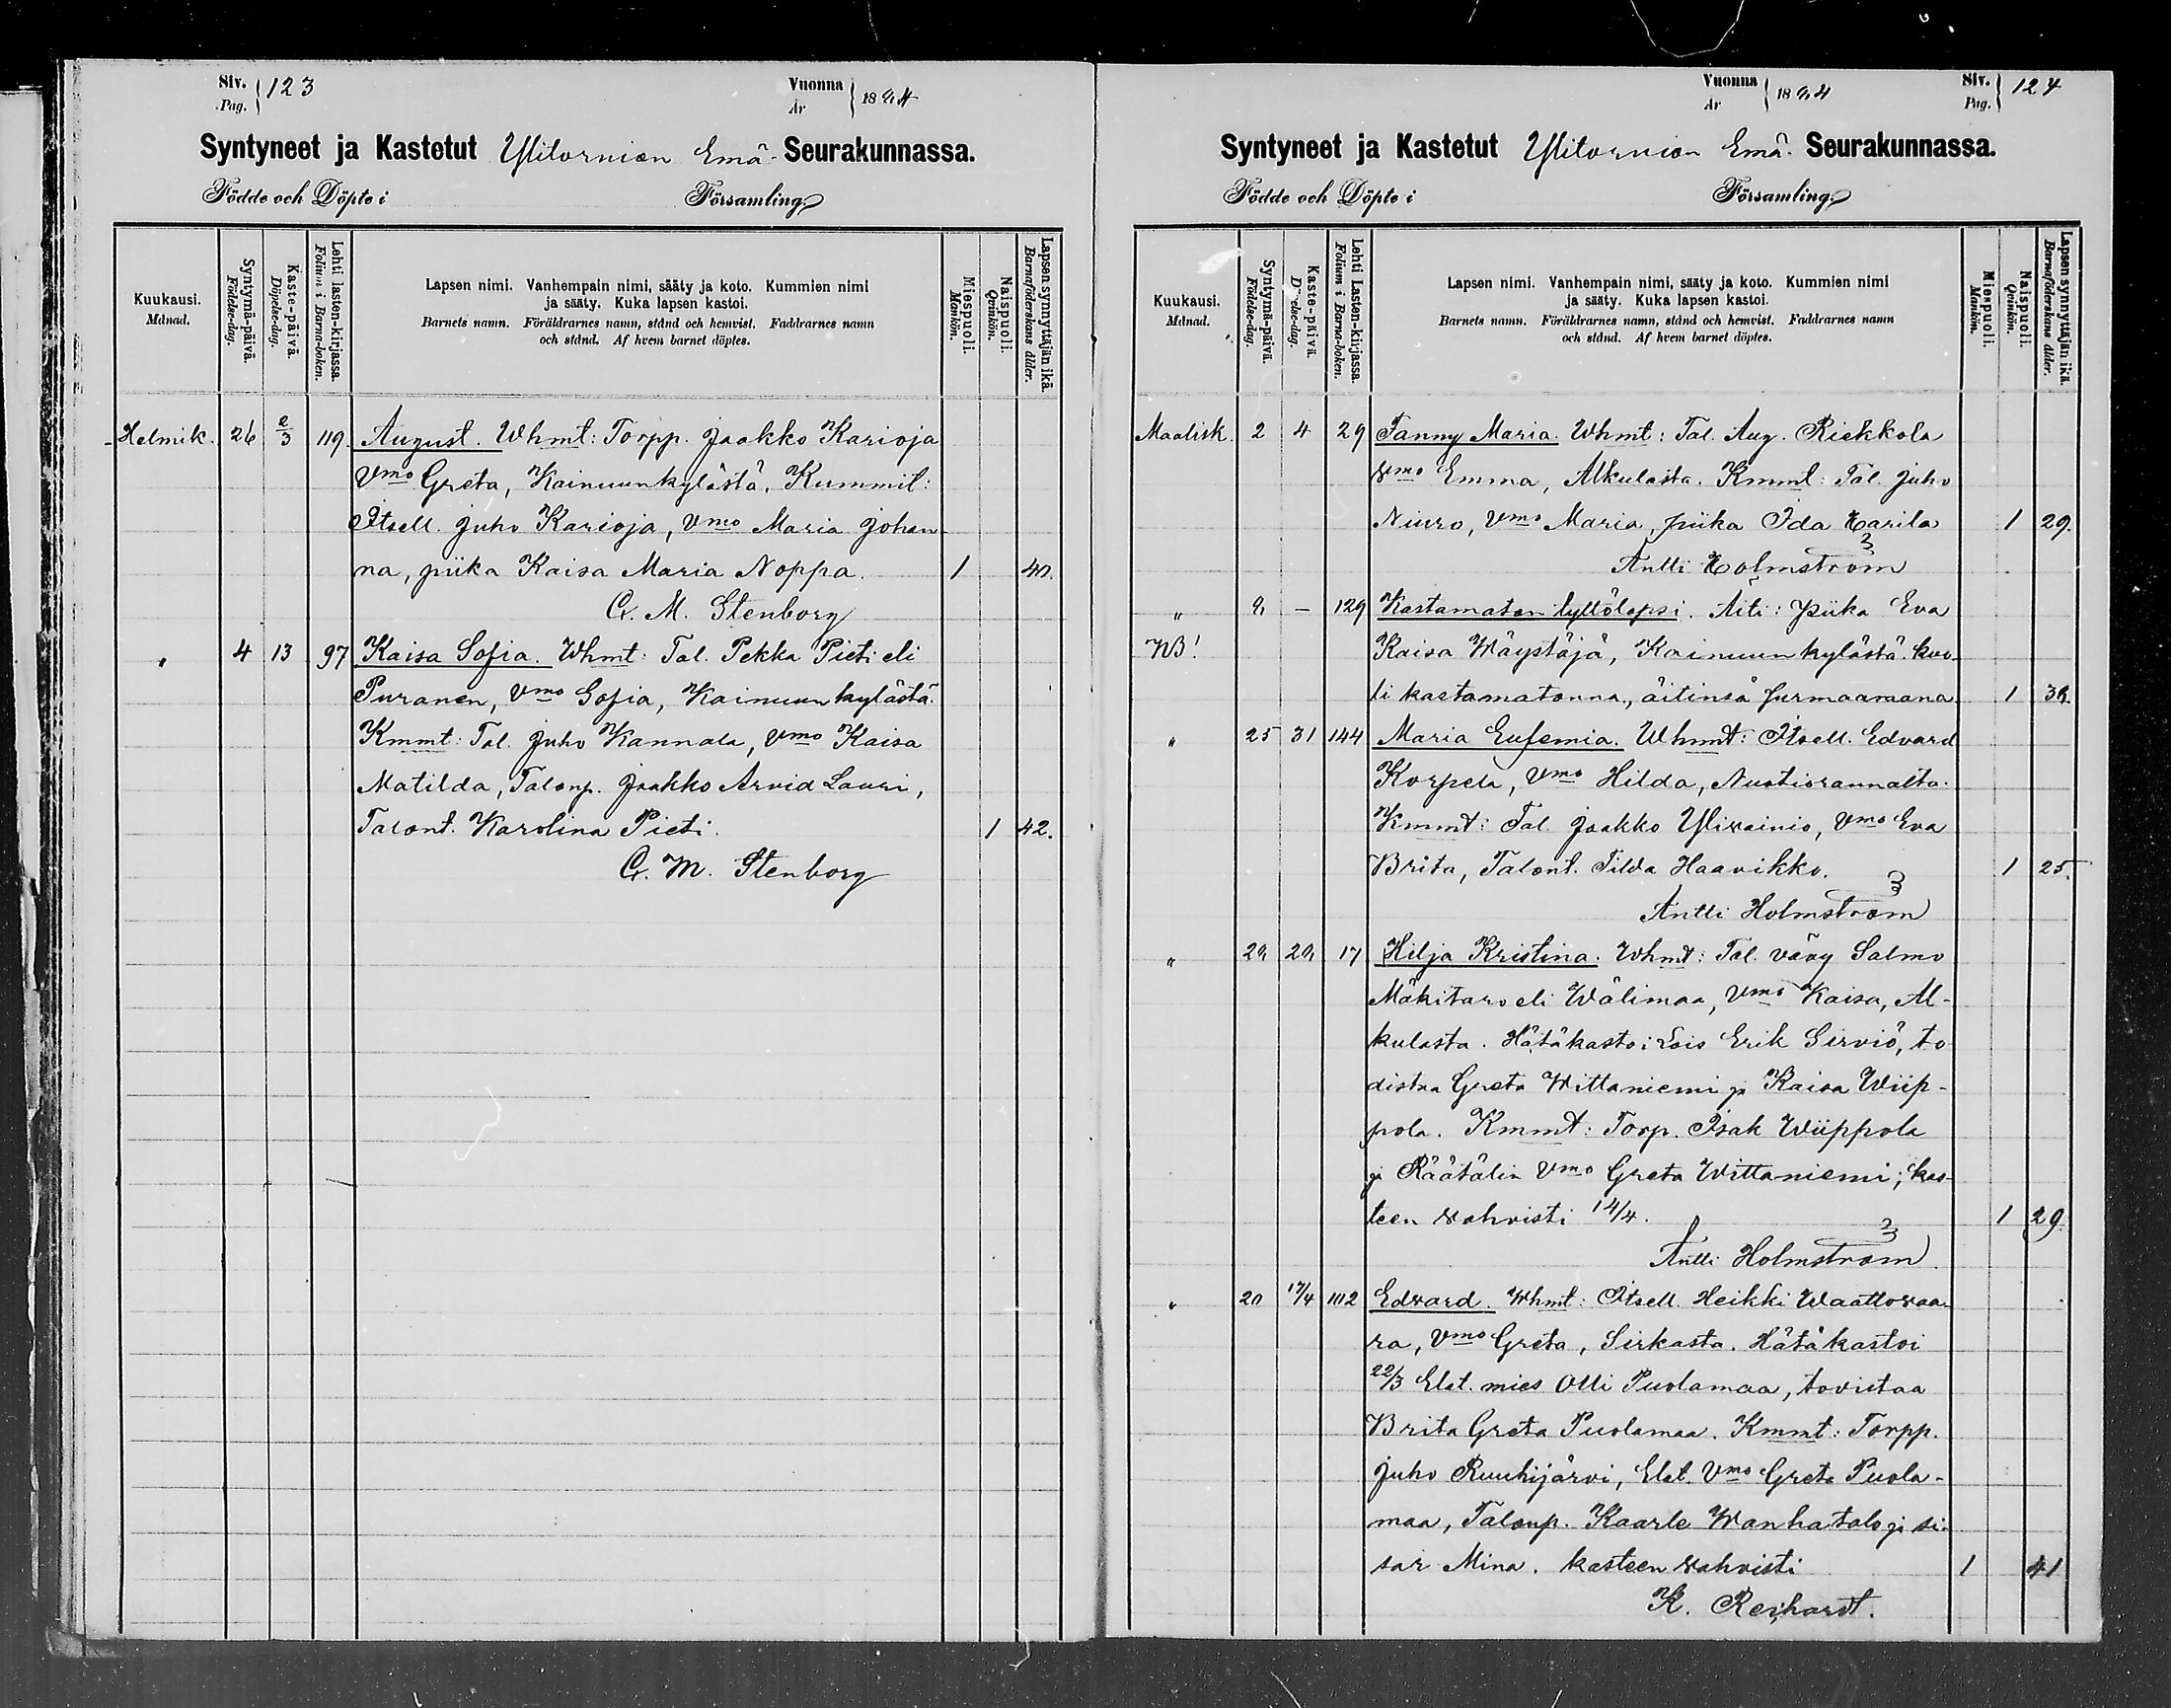 Siv. 123 Vuonna 1894
Pag. År
Syntyneet ja Kastetut Ylitornion Emä- Seurakunnassa.
Födde och Döpte i Församling
Kuukausi. Månad.
Syntymä-päivä. Födelse-dag.
Kaste-päivä. Döpelse-dag.
Lehti lasten-kirjassa. Folium i Barna-boken.
Lapsen nimi. Vanhempain nimi, sääty ja koto. Kummien nimi
ja sääty. Kuka lapsen kastoi.
Barnets namn. Föräldrarnes namn, stånd och hemvist. Faddrarnes namn
och stånd. Af hvem barnet döptes.
Miespuoli. Mankön.
Naispuoli. Qvinkön.
Lapsen synnyttäjän ikä. Barnaföderskans ålder.
Helmik. 26 2/3 119 August. Whmt: Torpp. Jaakko Karioja
Vmo Greta, Kainuunkylästä. Kummit:
Itsell. Juho Karioja, Vmo Maria Johan-
na, piika Kaisa Maria Noppa. 1 40.
C. M. Stenborg
" 4 13 97 Kaisa Sofia. Whmt: Tal. Pekka Pieti eli
Puranen, Vmo Sofia, Kainuunkylästä.
Kmmt: Tal. Juho Kannala, Vmo Kaisa
Matilda, Talonp. Jaakko Arvid Lauri,
Talont. Karolina Pieti. 1 42.
C. M. Stenborg
Vuonna 1894 Siv. 124
År Pag.
Syntyneet ja Kastetut Ylitornion Emä- Seurakunnassa.
Födde och Döpte i Församling
Kuukausi. Månad.
Syntymä-päivä. Födelse-dag.
Kaste-päivä. D else-dag.
Lehti Lasten-kirjassa. Folium i Barna-boken.
Lapsen nimi. Vanhempain nimi, sääty ja koto. Kummien nimi
ja sääty. Kuka lapsen kastoi.
Barnets namn. Föräldrarnes namn, stånd och hemvist. Faddrarnes namn
och stånd. Af hvem barnet döptes.
Miespuoli. Mankön.
Naispuoli. Qvinkön.
Lapsen synnyttäjän ikä. Barnaföderskans ålder.
Maalisk. 2 4 29 Fanny Maria. Whmt: Tal. Aug. Riekkola
Vmo Emma, Alkulasta. Kmmt: Tal. Juho
Niuro, Vmo Maria, piika Ida Harila 1 29.
Antti Holmström
" 9 – 129 Kastamaton tyttölapsi. Äiti: Piika Eva
NB! Kaisa Mäystäjä, Kainuunkylästä. kuo-
li kastamatonna, äitinsä surmaamana. 1
" 25 31 144 Maria Eufemia. Whmt: Itsell. Edvard
Korpela, Vmo Hilda, Nuotiorannalta.
Kmmt: Tal. Jaakko Yliwainio, Vmo Eva
Brita, Talont. Tilda Haavikko. 1 25.
Antti Holmström
" 29 29 17 Hilja Kristina. Whmt: Tal. vävy Salmo
Mäkitaro eli Wälimaa, Vmo Kaisa, Al-
kulasta. Hätäkastoi Lois Erik Sirviö, to
distaa Greta Wittaniemi ja Kaisa Wiip-
pola. Kmmt: Torp. Isak Wiippola
ja Räätälin Vmo Greta Wittaniemi; kas-
teen vahvisti 14/4. 1 29.
Antti Holmström
" 20 17/4 102 Edvard. Whmt: Itsell. Heikki Waattovaa-
ra, Vmo Greta, Sirkasta. Hätäkastoi
22/3 Elat. mies Olli Puolamaa, todistaa
Brita Greta Puolamaa. Kmmt: Torpp.
Juho Ruuhijärvi, Elat. Vmo Greta Puola-
maa, Talonp. Kaarle Wanhatalo ja si-
sar Mina. kasteen vahvisti 1 41
K. Reihardt.